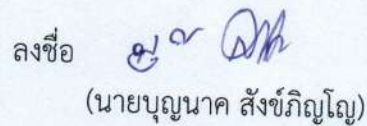 ลงชื่อ
(นายบุญนาค สังข์ภิญโญ)